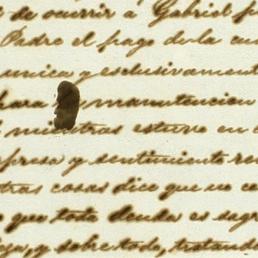 l de ocurrir á Gabriel p
Padre el pago de la cu
unica y esclusivament
para manutencion
mientras estuve en
presa y sentimiento re
tras cosas dice que no ce
que toda deuda es sag
y sobre todo, tratand